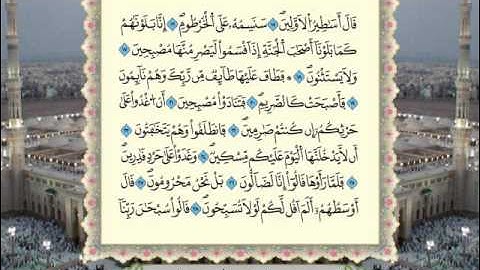 قَالَ أَسَٰطِيرُ اُ۬لْأَوَّلِينَ سَنَسِمُهُۥ عَلَى اَ۬لْخُرْطُومِ إِنَّا بَلَوْنَٰهُمْ
كَمَا بَلَوْنَا أَصْحَٰبَ اَ۬لْجَنَّةِ إِذْ أَقْسَمُوا۟ لَيَصْرِمُنَّهَا مُصْبِحِينَ
وَلَا يَسْتَثْنُونَ فَطَافَ عَلَيْهَا طَآئِفٌ مِّن رَّبِّكَ وَهُمْ نَآئِمُونَ
فَأَصْبَحَتْ كَالصَّرِيمِ فَتَنَادَوْا۟ مُصْبِحِينَ أَنُ اُ۟غْدُوا۟ عَلَىٰ
حَرْثِكُمُۥ إِن كُنتُمْ صَٰرِمِينَ فَانطَلَقُوا۟ وَهُمْ يَتَخَٰفَتُونَ
أَن لَّا يَدْخُلَنَّهَا اَ۬لْيَوْمَ عَلَيْكُم مِّسْكِينٌ وَغَدَوْا۟ عَلَىٰ حَرْدٍ قَٰدِرِينَ
فَلَمَّا رَأَوْهَا قَالُوٓا۟ إِنَّا لَضَآلُّونَ بَلْ نَحْنُ مَحْرُومُونَ قَالَ
أَوْسَطُهُمُۥ أَلَمَ اَقُل لَّكُمْ لَوْلَا تُسَبِّحُونَ قَالُوا۟ سُبْحَٰنَ رَبِّنَا